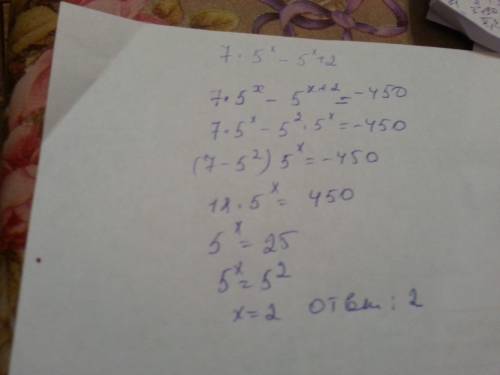 7 · 5ˣ − 5ˣ+2
7 · 5ˣ − 5ˣ⁺² = −450
7 · 5ˣ − 5² · 5ˣ = −450
(7 − 5²) 5ˣ = −450
18 · 5ˣ = 450
5ˣ = 25
5ˣ = 5²
x = 2 Ответ : 2